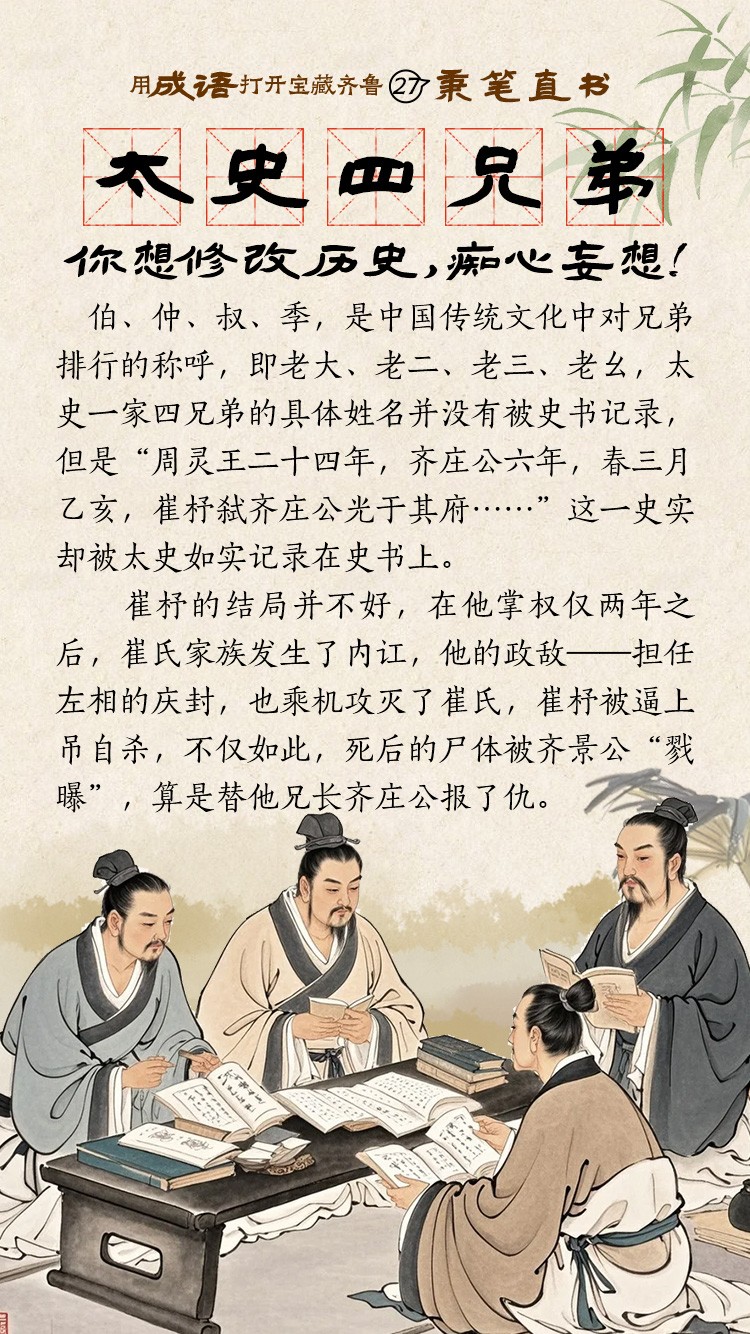 用成语打开宝藏齐鲁㉗秉笔直书
太史四兄弟
你想修改历史,痴心妄想!
伯、仲、叔、季，是中国传统文化中对兄弟
排行的称呼，即老大、老二、老三、老幺，太
史一家四兄弟的具体姓名并没有被史书记录，
但是“周灵王二十四年，齐庄公六年，春三月
乙亥，崔杼弑齐庄公光于其府……”这一史实
却被太史如实记录在史书上。
崔杼的结局并不好，在他掌权仅两年之
后，崔氏家族发生了内讧，他的政敌——担任
左相的庆封，也乘机攻灭了崔氏，崔杼被逼上
吊自杀，不仅如此，死后的尸体被齐景公“戮
曝”，算是替他兄长齐庄公报了仇。